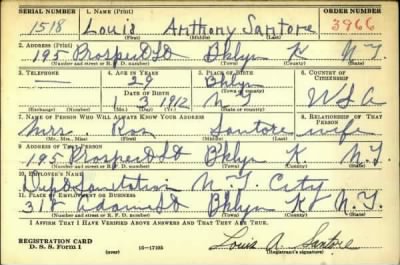 SERIAL NUMBER 1. NAME (Print) ORDER NUMBER
1518 Louis Anthony Santore 3966
(First) (Middle) (Last)
2. ADDRESS (Print)
195 Prospect St Bklyn K N.Y.
(Number and street or R. F. D. number) (Town) (County) (State)
3. TELEPHONE 4. AGE IN YEARS 5. PLACE OF BIRTH 6. COUNTRY OF CITIZENSHIP
29 Bklyn
DATE OF BIRTH (Town or county)
1 3 1912 N Y USA
(Exchange) (Number) (Mo.) (Day) (Yr.) (State or country)
7. NAME OF PERSON WHO WILL ALWAYS KNOW YOUR ADDRESS 8. RELATIONSHIP OF THAT PERSON
Mrs. Santore wife
(Mr., Mrs., Miss) (First) (Middle) (Last)
9. ADDRESS OF THAT PERSON
195 Prospect St Bklyn K N.Y.
(Number and street or R. F. D. number) (Town) (County) (State)
10. EMPLOYER'S NAME
Dept Sanitation N.Y. City
11. PLACE OF EMPLOYMENT OR BUSINESS
318 Adams St Bklyn N.Y.
(Number and street or R. F. D. number) (Town) (County) (State)
I AFFIRM THAT I HAVE VERIFIED ABOVE ANSWERS AND THAT THEY ARE TRUE.
REGISTRATION CARD
D. S. S. Form 1 (over) 16—17105 Louis A. Santore
(Registrant's signature)